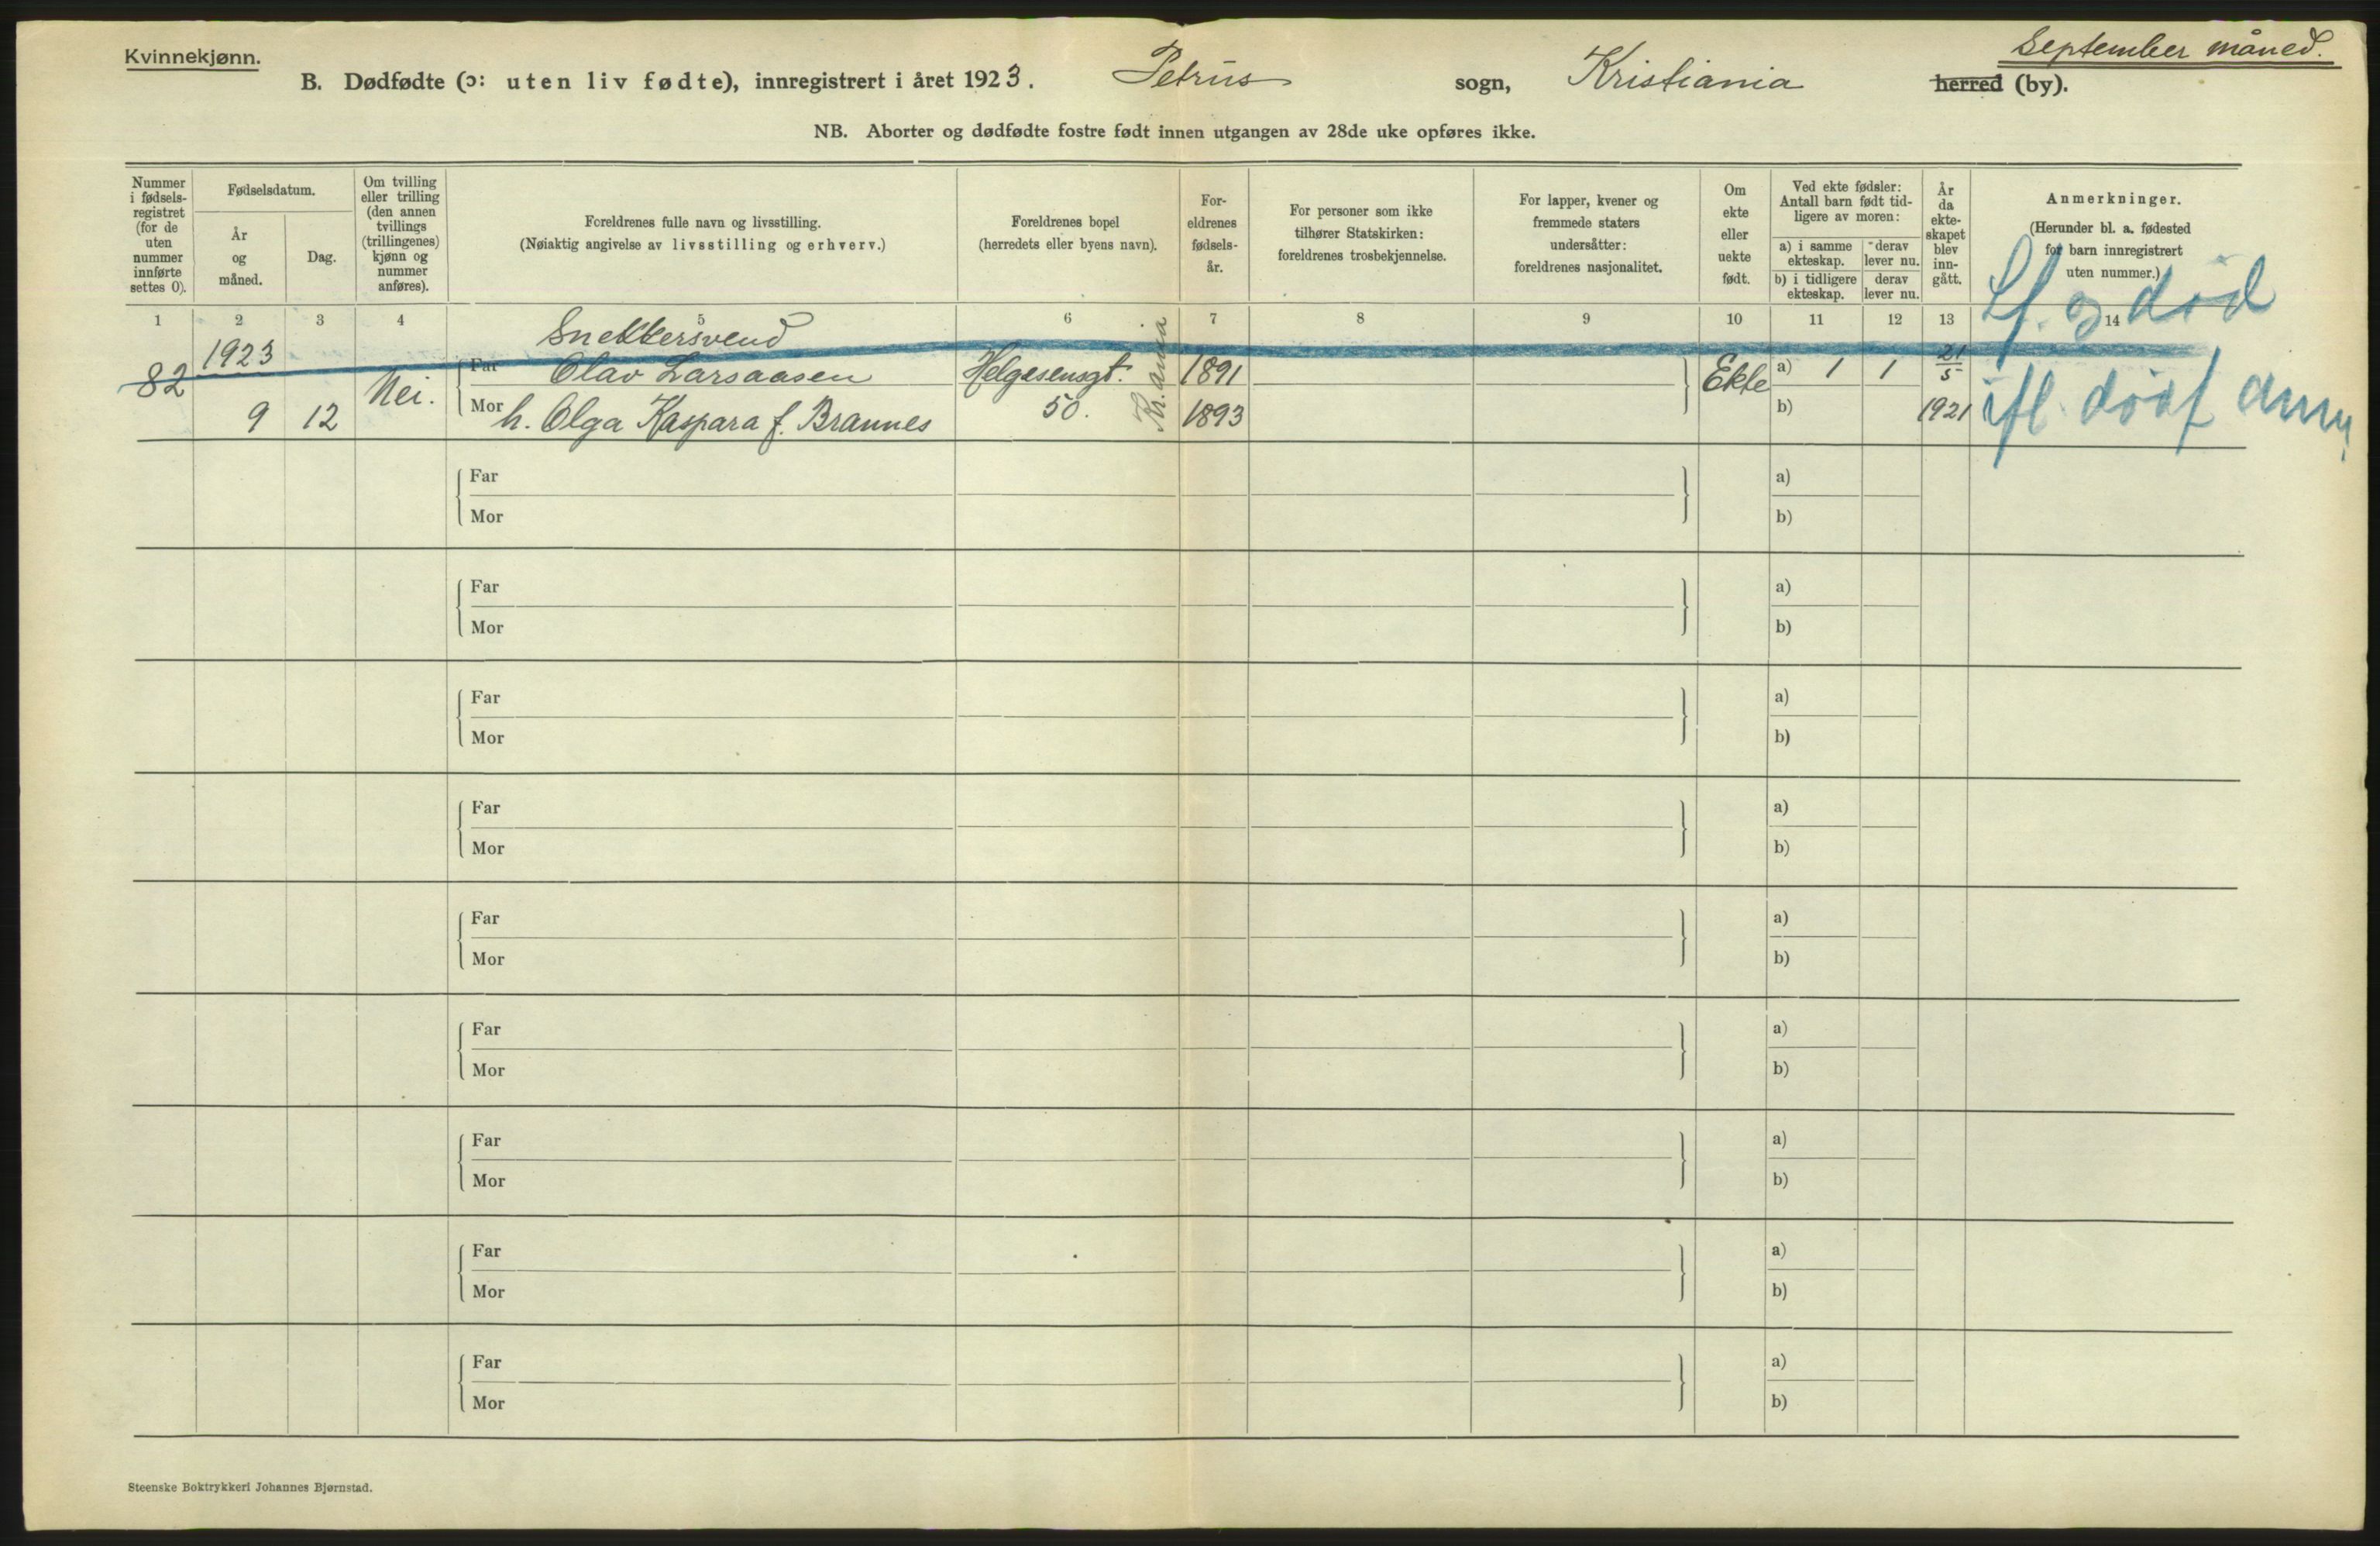 Kvinnekjønn.
September måned.
B. Dødfødte (ɔ: uten liv fødte), innregistrert i året 1923. Petrus sogn, Kristiania herred (by).
NB. Aborter og dødfødte fostre født innen utgangen av 28de uke opføres ikke.
Nummer i fødsels-registret (for de uten nummer innførte settes 0).
Fødselsdatum.
År og måned.
Dag.
Om tvilling eller trilling (den annen tvillings (trillingenes) kjønn og nummer anføres).
Foreldrenes fulle navn og livsstilling.
(Nøiaktig angivelse av livsstilling og erhverv.)
Foreldrenes bopel
(herredets eller byens navn).
For-eldrenes fødsels-år.
For personer som ikke tilhører Statskirken: foreldrenes trosbekjennelse.
For lapper, kvener og fremmede staters undersåtter: foreldrenes nasjonalitet.
Om ekte eller uekte født.
Ved ekte fødsler: Antall barn født tid-ligere av moren:
a) i samme ekteskap.
derav lever nu.
b) i tidligere ekteskap.
derav lever nu.
År da ekte-skapet blev inn-gått.
Anmerkninger.
(Herunder bl. a. fødested for barn innregistrert uten nummer.)
1 2 3 4 5 6 7 8 9 10 11 12 13 14
Snekkersvend
82 1923 9 12 Nei.
Far Olav Larsaasen Helgesensgt. 1891 Ekte a) 1 1 21/5
Mor h. Olga Kaspara f. Brannes 50. Kr.ania 1893 b) 1921
død
Far a)
Mor b)
Far a)
Mor b)
Far a)
Mor b)
Far a)
Mor b)
Far a)
Mor b)
Far a)
Mor b)
Far a)
Mor b)
Far a)
Mor b)
Far a)
Mor b)
Steenske Boktrykkeri Johannes Bjørnstad.